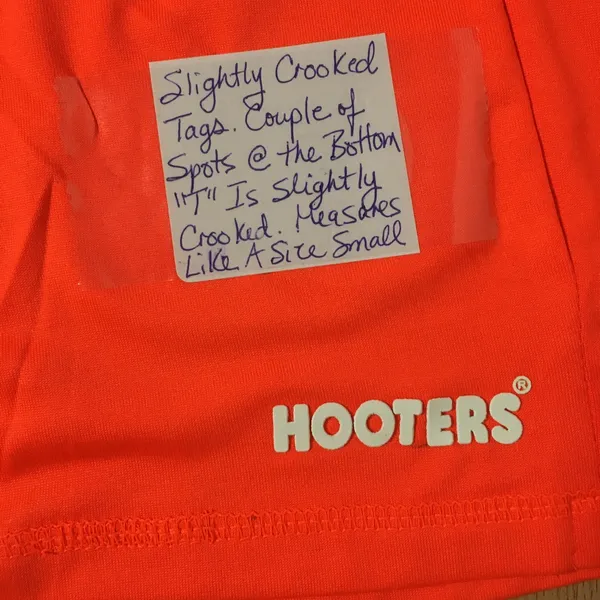 Slightly Crooked
Tags. Couple of
Spots @ the Bottom
"T" Is Slightly
Crooked. Measures
Like A Size Small
HOOTERS®